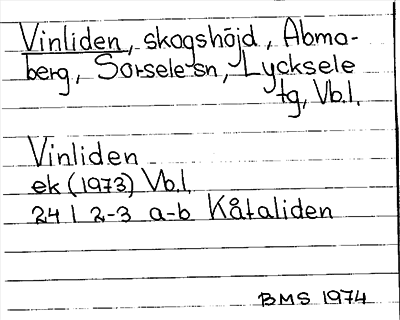 Vinliden, skogshöjd, Abmo-
berg, Sorsele sn, Lycksele
tg, Vb.l.
Vinliden
ek (1973) Vb.l.
24 I 2-3 a-b Kåtaliden
BMS 1974